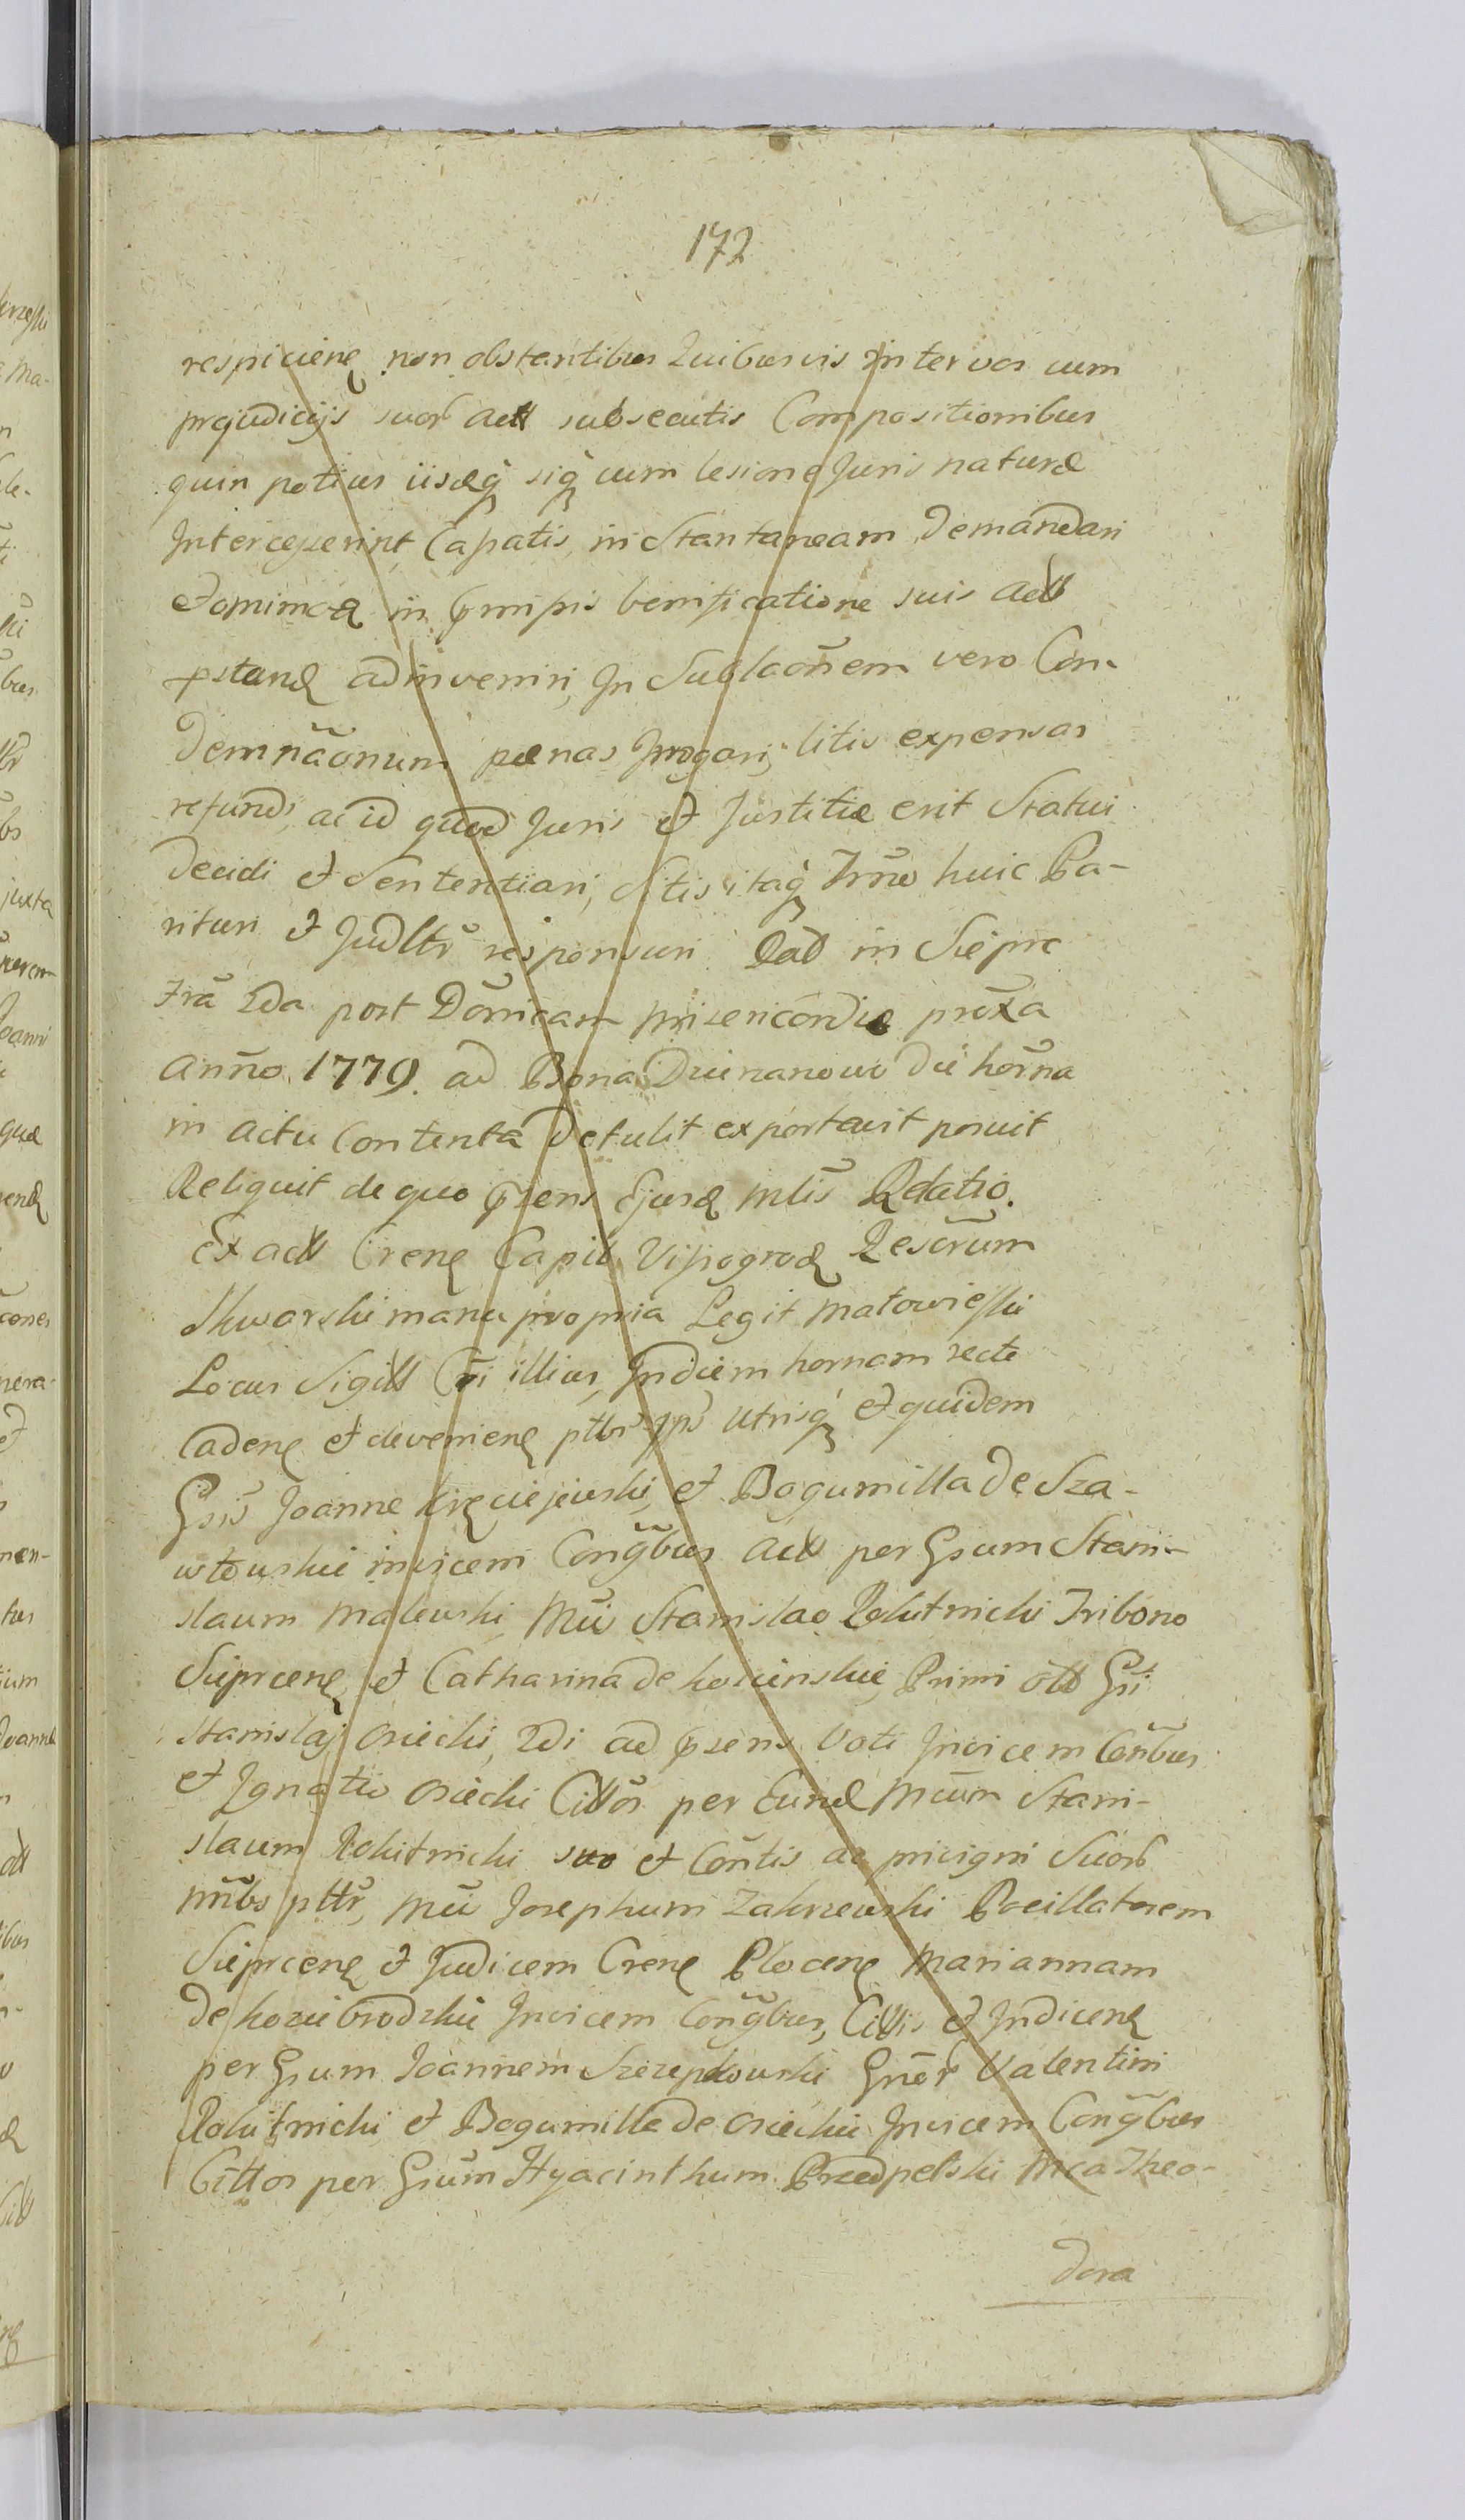 172
respicienę non obstantibus Quibusvis inter vos cum
prejudicijs suor act subsecutis Compositionibus
quin potius iisdęq siq cum lesione Juris naturæ
Interceperint Cassatis, in Stantaneam Demandari
in bonificatione suis act
pstand adinveniri, In Sublaõnem vero Con-
demnãonum pœnas Irrogari, litis expensas
refundi, ac id quod Juris et Justitiæ erit Statui
Decidi et Sententiari, Sitis itaq Trno huic Pa-
rituri et Judltr responsuri. Dat in Sieprc
Fria 2da post Dõnicam Misericordiæ proxa
Anno 1779. ad Bona die horna
in actu Contenta Detulit exportavit posuit
Reliquit de quo psens Ejusd Mlis Relatio.
Ex act Crenę Capit Vissogrod Resõrum
Skwarski manu propria Legit Matowieski
Locus Sigill Cri illius, In diem hornam recte
Cadenę et devenienę ptbs Ips Utrisq et quidem
Gsis Joanne Kręciejewski, et Bogumilla de Sza-
włowskie invicem Cong̃bus Act per Gsum Stani-
slaum Malewski Mci Stanislao Rokitnicki Tribono
Sieprcenę et Catharina de Kosinskie, Primi ott Gsi
Stanislaj Osiecki, 2di ad psens Voti Invicem Coñbus
et Ignatio Osiecki Cittõs per Eund Mcum Stani-
slaum Rokitnicki suo et Cõntis ac privigni Suor
Nnibs pttr, Mci Josephum Zakrzewski Pocillatorem
Sieprcenę et Judicem Crenę Plocenę Mariannam
de Kozie Brodzkie Invicem Cong̃bus, Cittis et Indicenę
per Gsum Joannem Szczepkowski Gner Valentini
Rokitnicki et Bogumilla de Osieckie Invicem Cong̃bus
Cittos per Gsum Hyacinthum Przedpelski Mca Theo-
dora